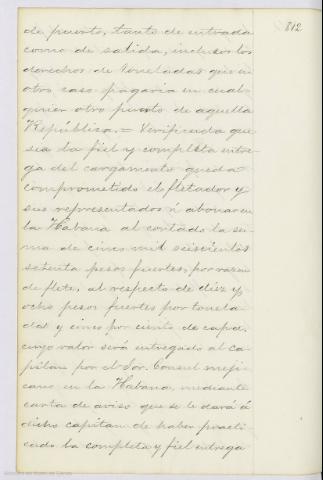 812
de puerto, tanto de entrada
como de salida, inclusos los
derechos de toneladas que en
otro caso pagaria en cual-
quier otro puerto de aquella
República. = Verificada que
sea la fiel y completa entre-
ga del cargamento queda
comprometido el fletador y
sus representados á abonar en
la Habana al contado la su-
ma de cinco mil seiscientos
setenta pesos fuertes, por razon
de flete, al respecto de diez y
ocho pesos fuertes por tonela-
da y cinco por ciento de capa,
cuyo valor será entregado al ca-
pitan por el Sor. Consul meji-
cano en la Habana, mediante
carta de aviso que se le dará á
dicho capitan de haber practi-
cado la completa y fiel entrega